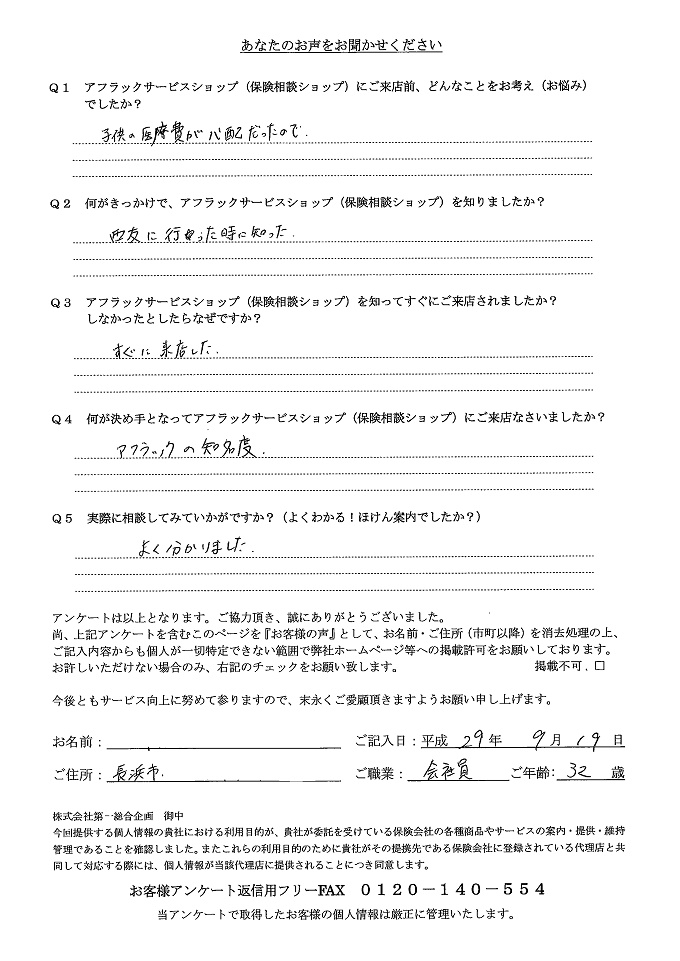 あなたのお声をお聞かせください
Q1 アフラックサービスショップ（保険相談ショップ）にご来店前、どんなことをお考え（お悩み）
でしたか？
子供の医療費が心配だったので.
Q2 何がきっかけで、アフラックサービスショップ（保険相談ショップ）を知りましたか？
西友に行った時に知った.
Q3 アフラックサービスショップ（保険相談ショップ）を知ってすぐにご来店されましたか？
しなかったとしたらなぜですか？
すぐに来店した.
Q4 何が決め手となってアフラックサービスショップ（保険相談ショップ）にご来店なさいましたか？
アフラックの知名度.
Q5 実際に相談してみていかがですか？（よくわかる！ほけん案内でしたか？）
よく分かりました.
アンケートは以上となります。ご協力頂き、誠にありがとうございました。
尚、上記アンケートを含むこのページを『お客様の声』として、お名前・ご住所（市町以降）を消去処理の上、
ご記入内容からも個人が一切特定できない範囲で弊社ホームページ等への掲載許可をお願いしております。
お許しいただけない場合のみ、右記のチェックをお願い致します。 掲載不可. □
今後ともサービス向上に努めて参りますので、末永くご愛顧頂きますようお願い申し上げます。
お名前： ご記入日：平成 29年 9月 19日
ご住所：長浜市. ご職業：会社員 ご年齢：32 歳
株式会社第一総合企画 御中
今回提供する個人情報の貴社における利用目的が、貴社が委託を受けている保険会社の各種商品やサービスの案内・提供・維持
管理であることを確認しました。またこれらの利用目的のために貴社がその提携先である保険会社に登録されている代理店と共
同して対応する際には、個人情報が当該代理店に提供されることにつき同意します。
お客様アンケート返信用フリーFAX 0120－140－554
当アンケートで取得したお客様の個人情報は厳正に管理いたします。